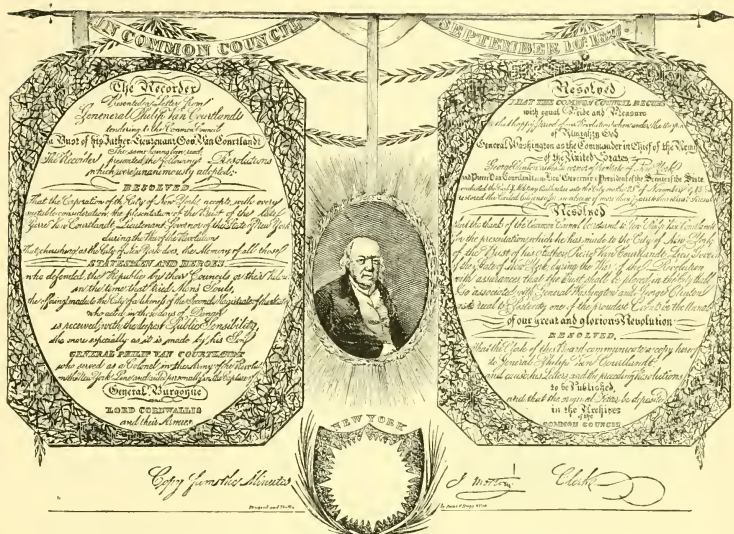 IN COMMON COUNCIL
SEPTEMBER
The Recorder
Presented a Letter from
General Philip Van Cortlandt
tendering to the Common Council
a Bust of his Father Lieutenant Gov. Van Cortlandt
The same having been read,
The Recorder presented the following Resolutions
which were unanimously adopted:
RESOLVED
That the Corporation of the City of New York accepts, with every
suitable consideration, the presentation of the Bust of the late
Van Cortlandt, Lieutenant Governor of the State of New York
during the War of the Revolution
That, cherishing as the City of New York does, the Memory of all those
STATESMEN AND HEROES
who defended the Republic by their Councils or their Valour
in the time that tried Men's Souls,
the offering made to the City of a likeness of the Second Magistrate of the State
who acted in those days of Danger
is received with the deepest Public Sensibility,
the more especially as it is made by his Son
GENERAL PHILIP VAN CORTLANDT
who served as a Colonel in the Army of the
in the New York Line and aided personally in the Capture of
General Burgoyne
LORD CORNWALLIS
and their Armies
Resolved
THAT THE COMMON COUNCIL
with equal Pride and Pleasure
to the happy Period of our Revolution when under the
of Almighty God
General Washington as the Commander in Chief of the Army
of the United States
George Clinton as the Governor of the State of New York
and Pierre Van Cortlandt as Lieut. Governor & President of the Senate of the State
conducted the into the City on the 25th of November 1783
restored the after an absence of more than Years to their
Resolved
that the thanks of the Common Council be returned to Gen. Philip Van Cortlandt
for the presentation which he has made to the City of New York
of the Bust of his Father, Pierre Van Cortlandt, Lieut. Governor
of the State of New York during the War of the Revolution
with assurances that the Bust shall be placed in the City Hall
be associated with General Washington and George Clinton
as to recal to Posterity one of the proudest Events in the Annals
of our great and glorious Revolution
RESOLVED,
That the Clerk of this Board communicate a copy hereof
to General Philip Van Cortlandt
and cause his Letters and the preceding Resolutions
to be Published,
and that the original Letter be deposited
in the Archives
of the
COMMON COUNCIL
NEW YORK
Copy from the Minutes
J. Morton Clerk
Designed and